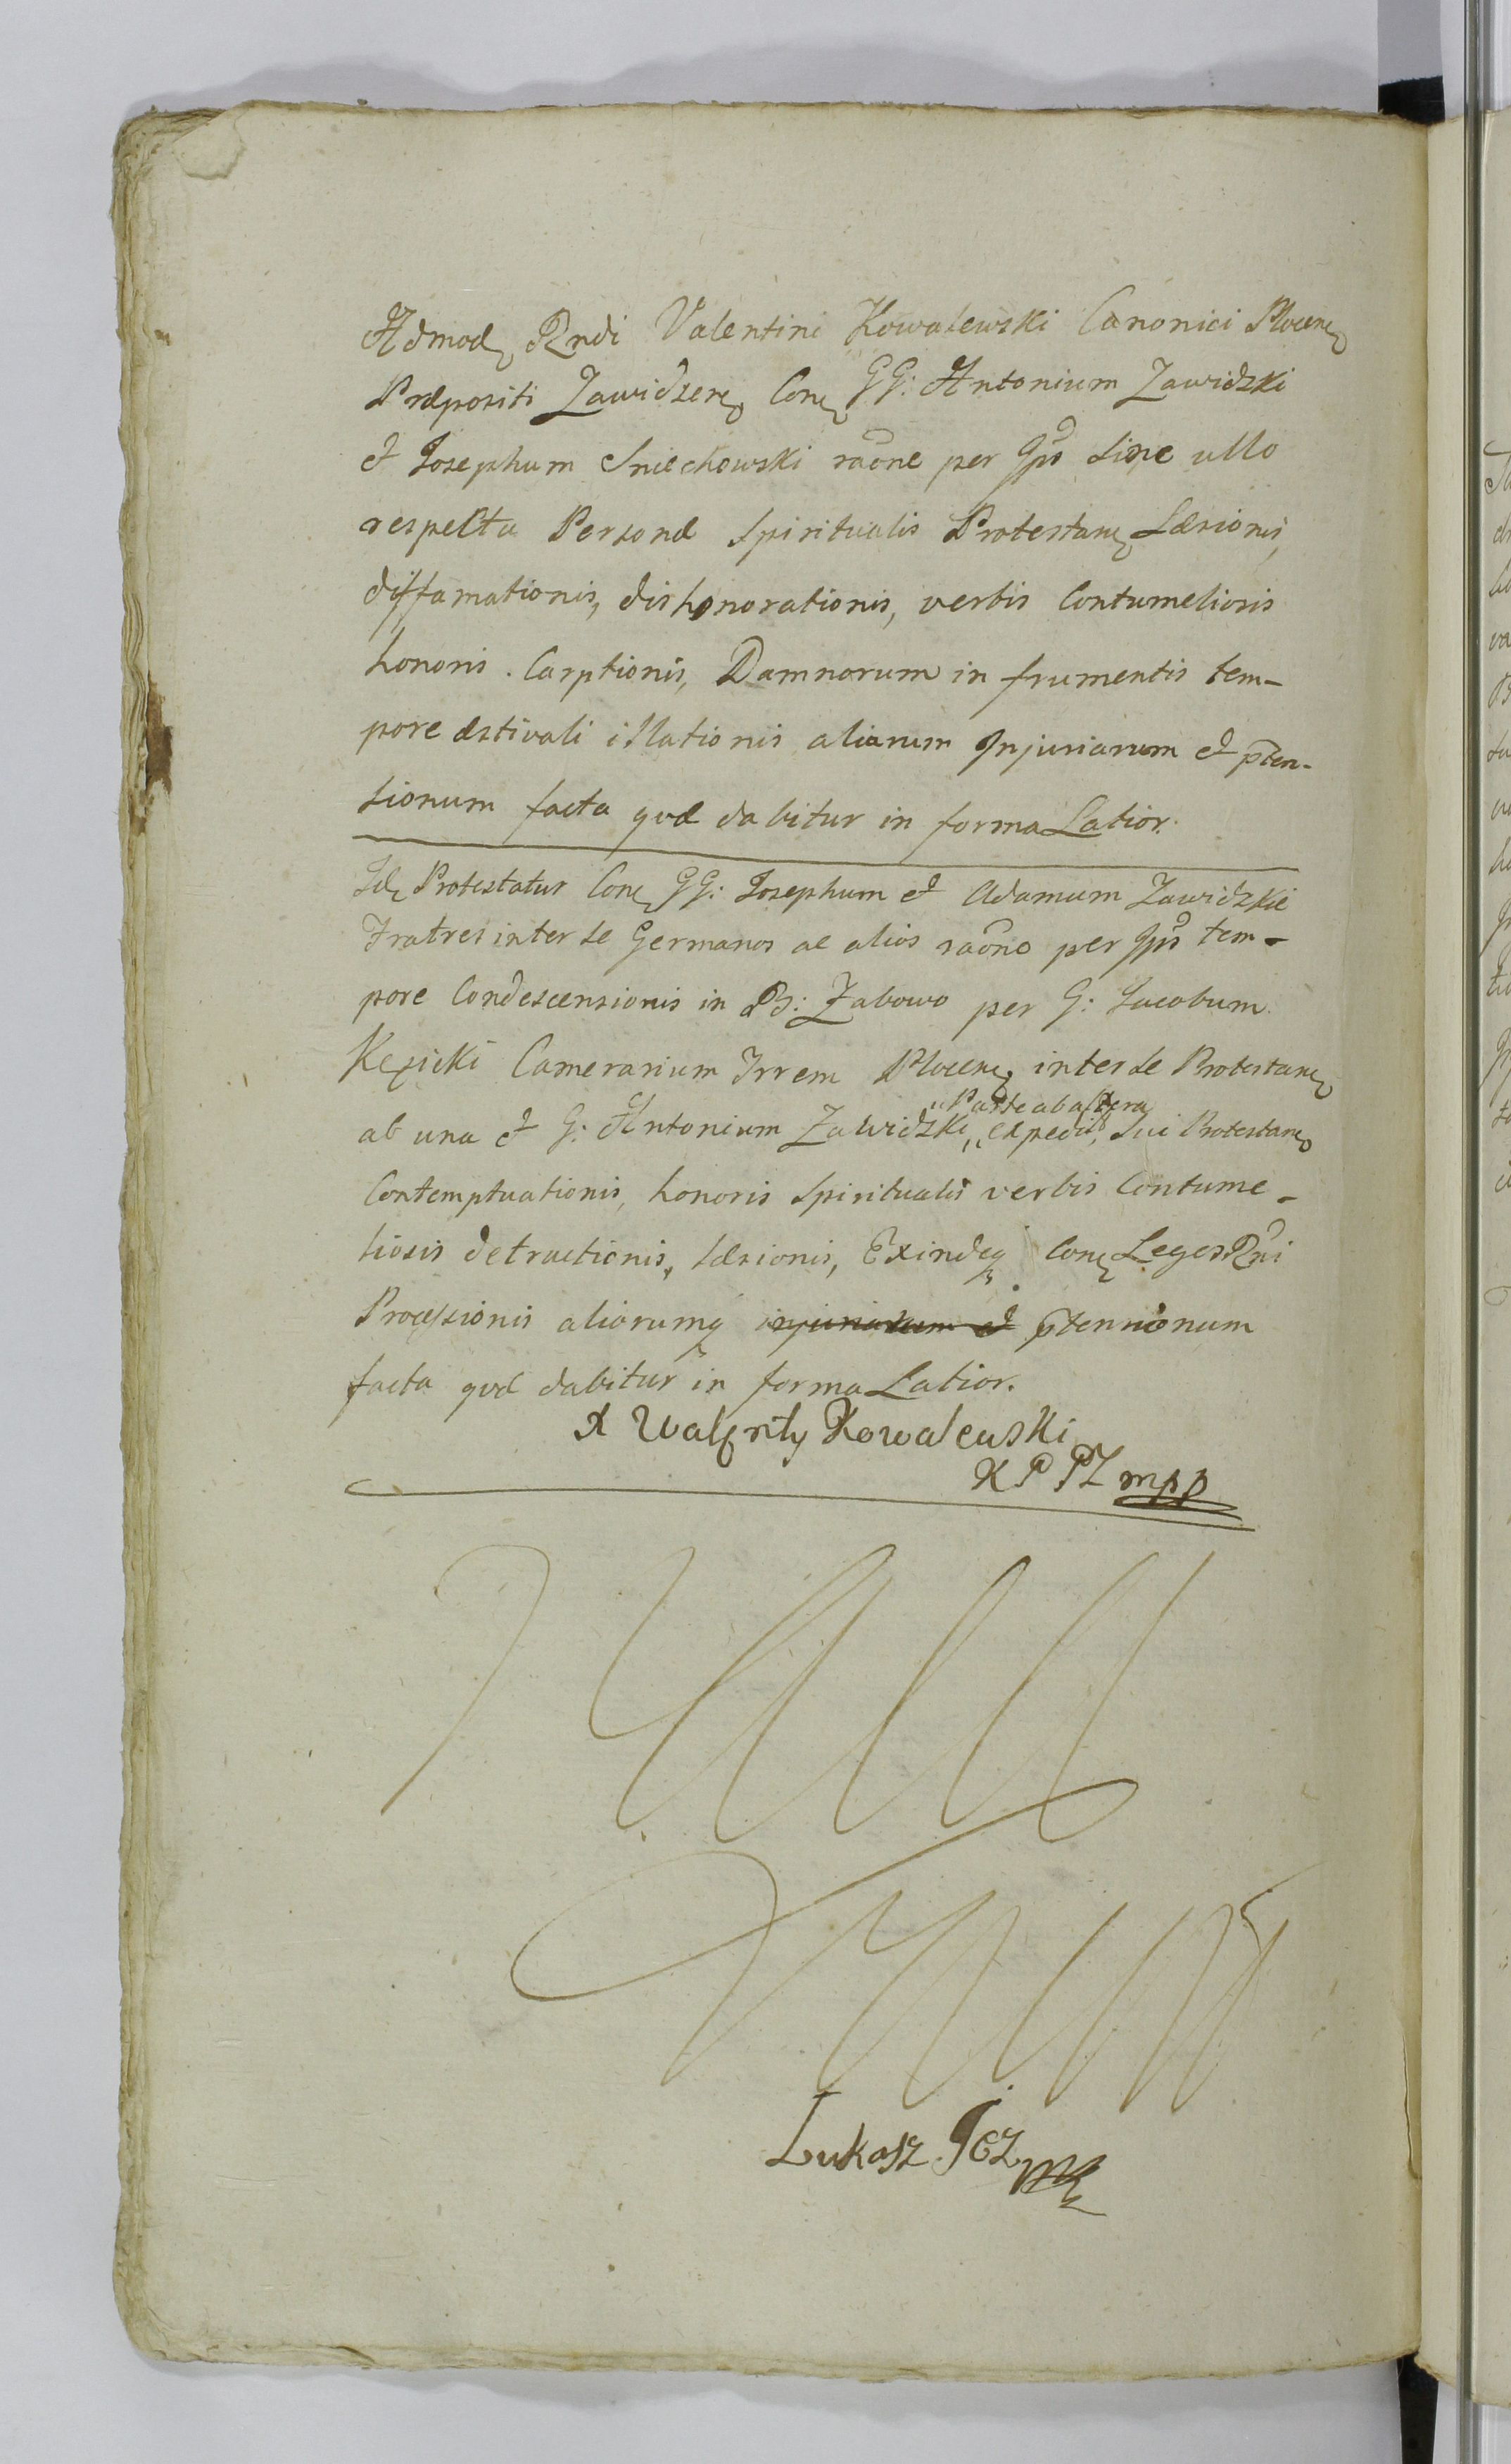 Admod Rndi Valentini Kowalewski Canonici Plocen
Præpositi Zawidzen Con GG: Antonium Zawidzki
et Josephum Sniechowski raõne per Ipõs sine ullo
respectu Personæ Spiritualis Protestan, Læsionis,
diffamationis, dishonorationis, verbis Contumeliosis
honoris. Carptionis, Damnorum in frumentis tem-
pore æstivali illationis aliarum Injuriarum et pten-
sionum facta quæ dabitur in forma Latior.
Id Protestatur Con GG: Josephum et Adamum Zawidzkie
Fratres inter se Germanos ac alios raõne per Ipõs tem-
pore Condescensionis in B: Zabowo per G: Jacobum
Kęsicki Camerarium Trrem Plocen inter se Protestan
Parte ab altera
ab una et G: Antonium Zawidzki, exped, Sui Protestan
Contemptuationis, honoris Spiritualis verbis Contume-
liosis detractionis, læsionis, Exindeq Con Leges Rni
Processionis aliarumq injuriarum et ptensionum
facta quæ dabitur in forma Latior.
X Walęnty Kowalewski
K P PZ mpp
Lukasz Jeż